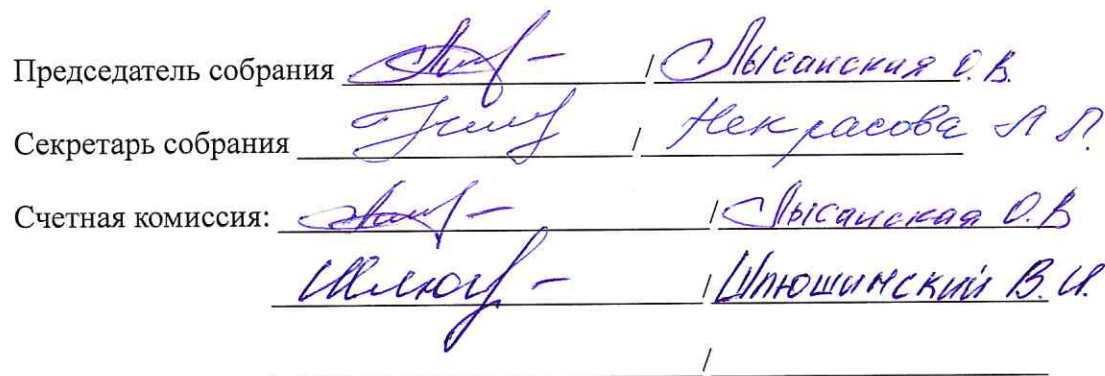 Председатель собрания / Лысанская О.В.
Секретарь собрания / Некрасова Л Л.
Счетная комиссия: / Лысанская О.В
/ Шпюшинский В.И.
/